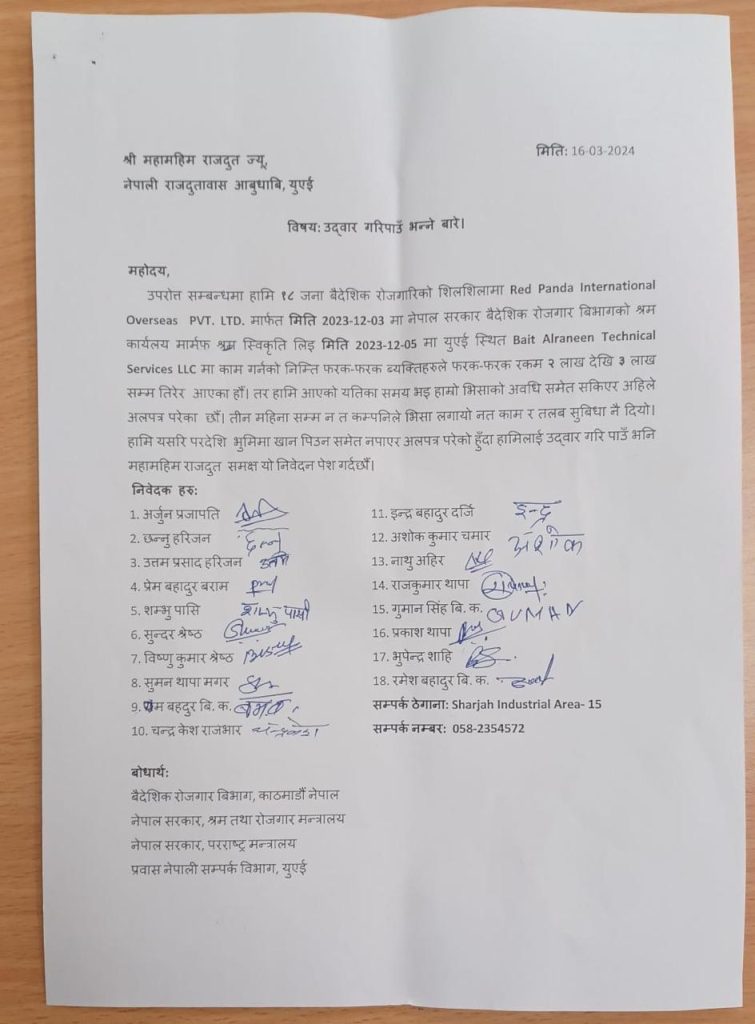 मिति: 16-03-2024
श्री महामहिम राजदुत ज्यू,
नेपाली राजदुतावास आबुधाबि, युएई
विषय: उद्वार गरिपाउँ भन्ने बारे।
महोदय,
उपरोत्त सम्बन्धमा हामि १८ जना बैदेशिक रोजगारिको शिलशिलामा Red Panda International
Overseas PVT. LTD. मार्फत मिति 2023-12-03 मा नेपाल सरकार बैदेशिक रोजगार बिभागको श्रम
कार्यलय मार्मफ श्रम स्विकृति लिइ मिति 2023-12-05 मा युएई स्थित Bait Alraneen Technical
Services LLC मा काम गर्नको निम्ति फरक-फरक ब्यक्तिहरुले फरक-फरक रकम २ लाख देखि ३ लाख
सम्म तिरेर आएका हौं। तर हामि आएको यतिका समय भइ हाम्रो भिसाको अवधि समेत सकिएर अहिले
अलपत्र परेका छौं। तीन महिना सम्म न त कम्पनिले भिसा लगायो नत काम र तलब सुबिधा नै दियो।
हामि यसरि परदेशि भुमिमा खान पिउन समेत नपाएर अलपत्र परेको हुँदा हामिलाई उद्वार गरि पाउँ भनि
महामहिम राजदुत समक्ष यो निवेदन पेश गर्दछौं।
निवेदक हरु:
1. अर्जुन प्रजापति
2. छन्नु हरिजन
3. उत्तम प्रसाद हरिजन
4. प्रेम बहादुर बराम
5. शम्भु पासि शम्भु पासी
6. सुन्दर श्रेष्ठ
7. विष्णु कुमार श्रेष्ठ
8. सुमन थापा मगर
9. प्रेम बहदुर बि. क.
10. चन्द्र केश राजभार
11. इन्द्र बहादुर दर्जि इन्द्र
12. अशोक कुमार चमार अशोक
13. नाथु अहिर
14. राजकुमार थापा
15. गुमान सिंह बि. क. GUMAN
16. प्रकाश थापा
17. भुपेन्द्र शाहि
18. रमेश बहादुर बि. क.
सम्पर्क ठेगाना: Sharjah Industrial Area- 15
सम्पर्क नम्बर: 058-2354572
बोधार्थ:
बैदेशिक रोजगार बिभाग, काठमाडौं नेपाल
नेपाल सरकार, श्रम तथा रोजगार मन्त्रालय
नेपाल सरकार, परराष्ट्र मन्त्रालय
प्रवास नेपाली सम्पर्क विभाग, युएई